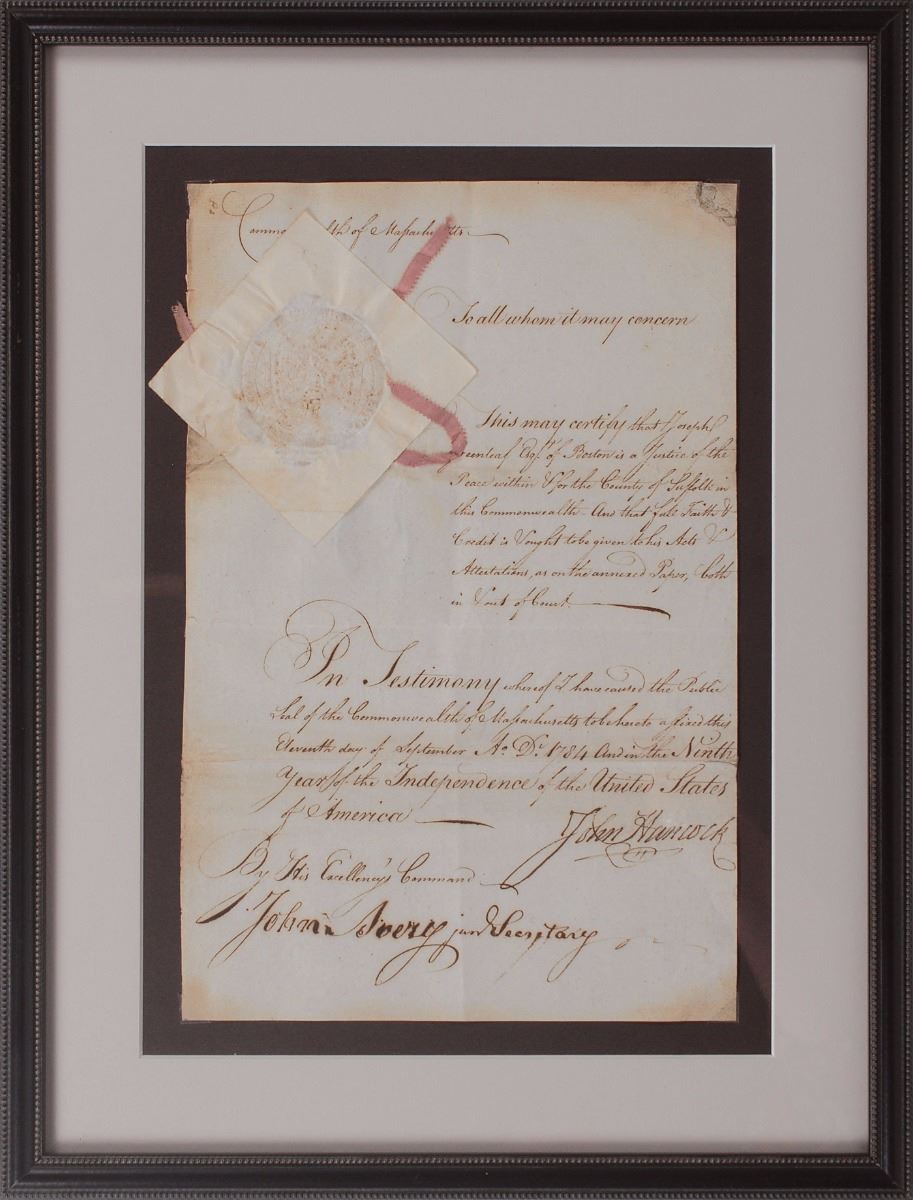 Commonwealth of Massachusetts
To all whom it may concern
This may certify that Joseph
Greenleaf Esqr. of Boston is a Justice of the
Peace within & for the County of Suffolk in
this Commonwealth And that full Faith &
Credit is & ought to be given to his Acts &
Attestations, as on the annexed Paper, both
in & out of Court.
In Testimony whereof I have caused the Public
Seal of the Commonwealth of Massachusetts to be hereto affixed this
Eleventh day of September Ao. Di. 1784 And in the Ninth
Year of the Independence of the United States
of America
John Hancock
By His Excellency's Command
John Avery junr Secretary